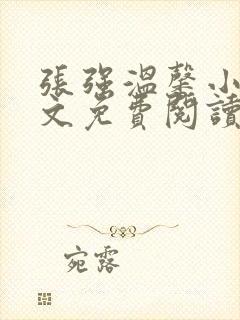 張強溫馨小
文免費閱讀
宛露